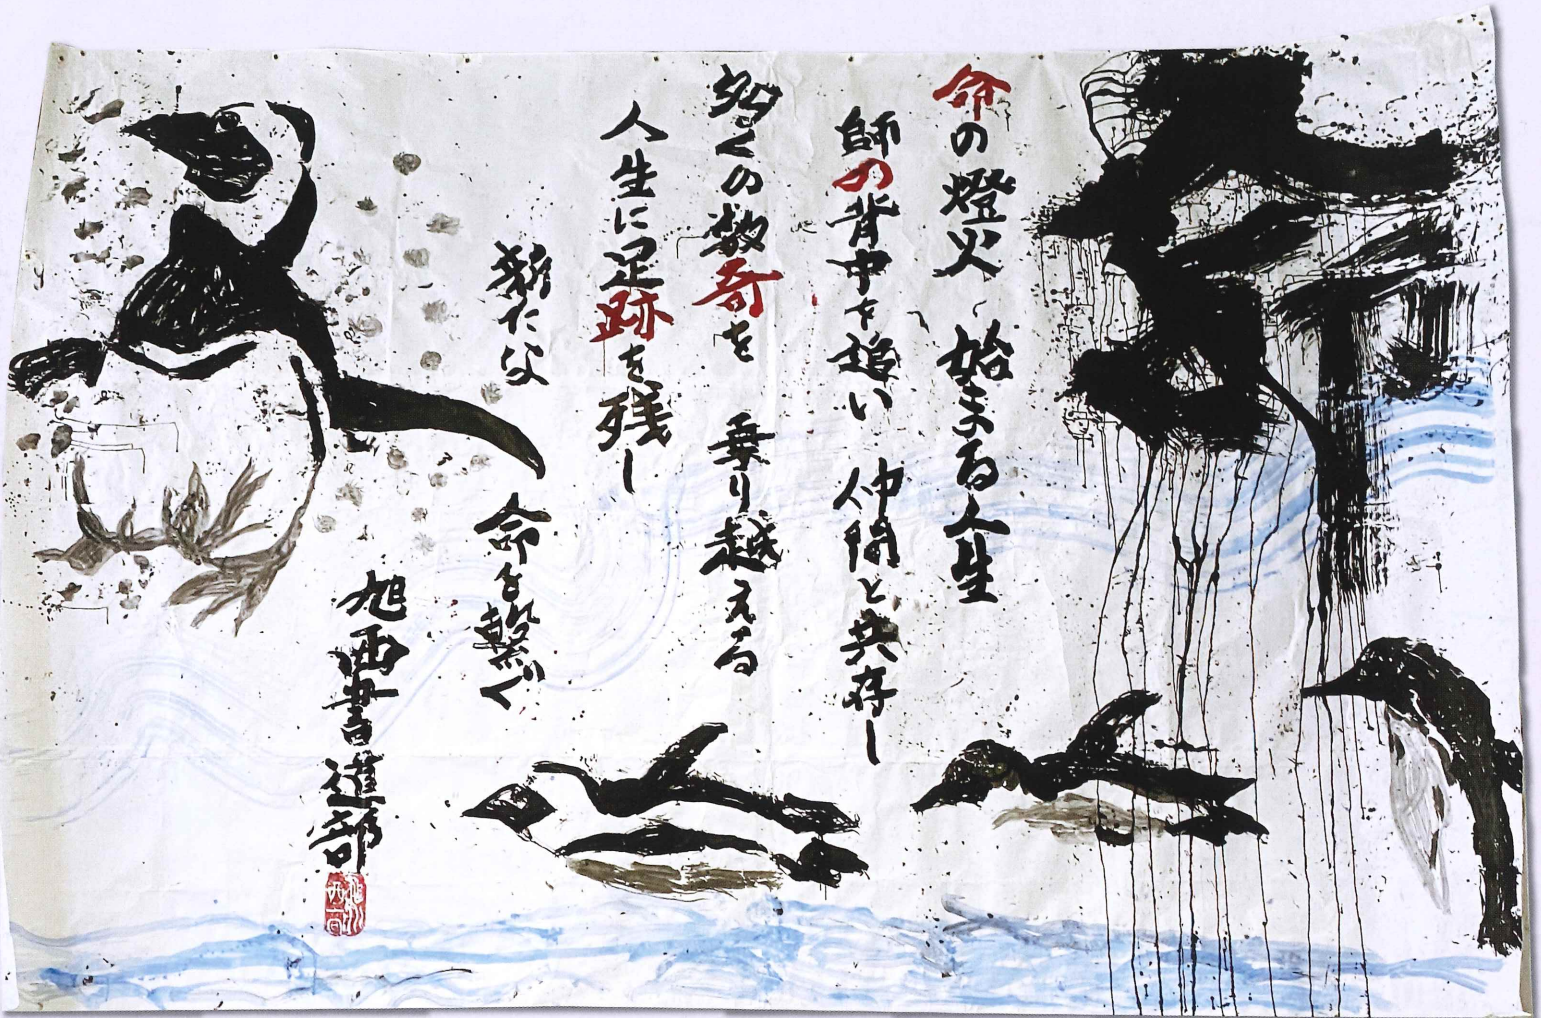 命
命の燈火、始まる人生
師の背中を追い 仲間と共存し
多くの数奇を 乗り越える
人生に足跡を残し
新たな 命を繋ぐ
旭西書道部